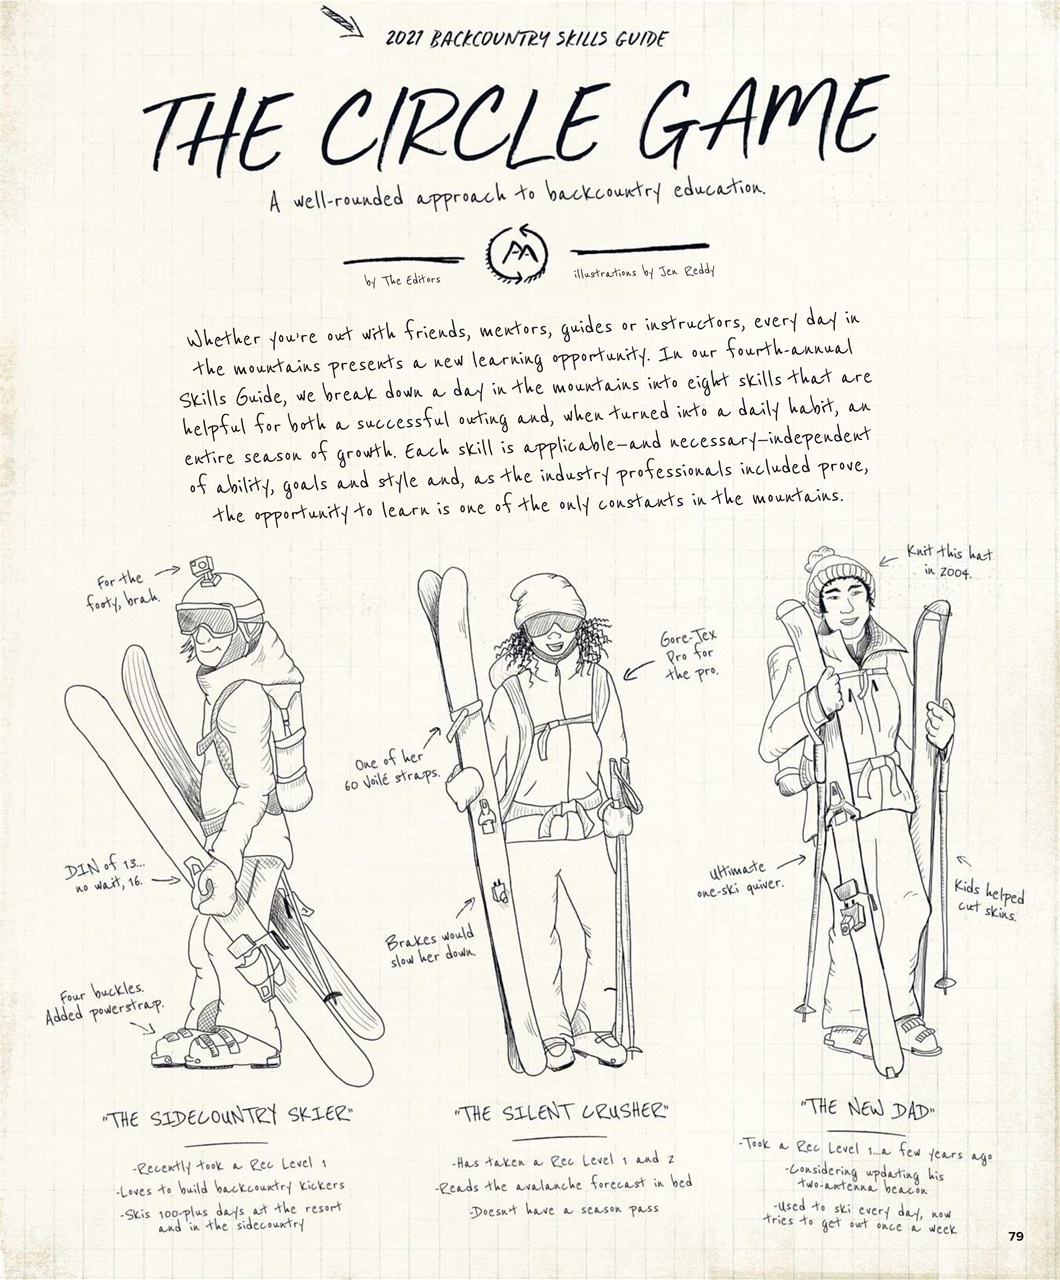 2021 BACKCOUNTRY SKILLS GUIDE
THE CIRCLE GAME
A well-rounded approach to backcountry education.
by The Editors
illustrations by Jen Reddy
Whether you're out with friends, mentors, guides or instructors, every day in
the mountains presents a new learning opportunity. In our fourth-annual
Skills Guide, we break down a day in the mountains into eight skills that are
helpful for both a successful outing and, when turned into a daily habit, an
entire season of growth. Each skill is applicable—and necessary—independent
of ability, goals and style and, as the industry professionals included prove,
the opportunity to learn is one of the only constants in the mountains.
For the
footy, brah.
DIN of 13...
no wait, 16.
Four buckles.
Added powerstrap.
One of her
60 Voilé straps.
Gore-Tex
Pro for
the pro.
Brakes would
slow her down.
Knit this hat
in 2004.
Ultimate
one-ski quiver.
Kids helped
cut skins.
"THE SIDECOUNTRY SKIER"
-Recently took a Rec Level 1
-Loves to build backcountry kickers
-Skis 100-plus days at the resort
and in the sidecountry
"THE SILENT CRUSHER"
-Has taken a Rec Level 1 and 2
-Reads the avalanche forecast in bed
-Doesn't have a season pass
"THE NEW DAD"
-Took a Rec Level 1...a few years ago
-Considering updating his
two-antenna beacon
-Used to ski every day, now
tries to get out once a week
79